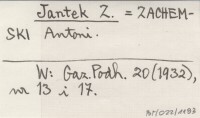 Jantek Z. = ZACHEM-
SKI Antoni.
W: Gaz. Podh. 20(1932),
nr 13 i 17.